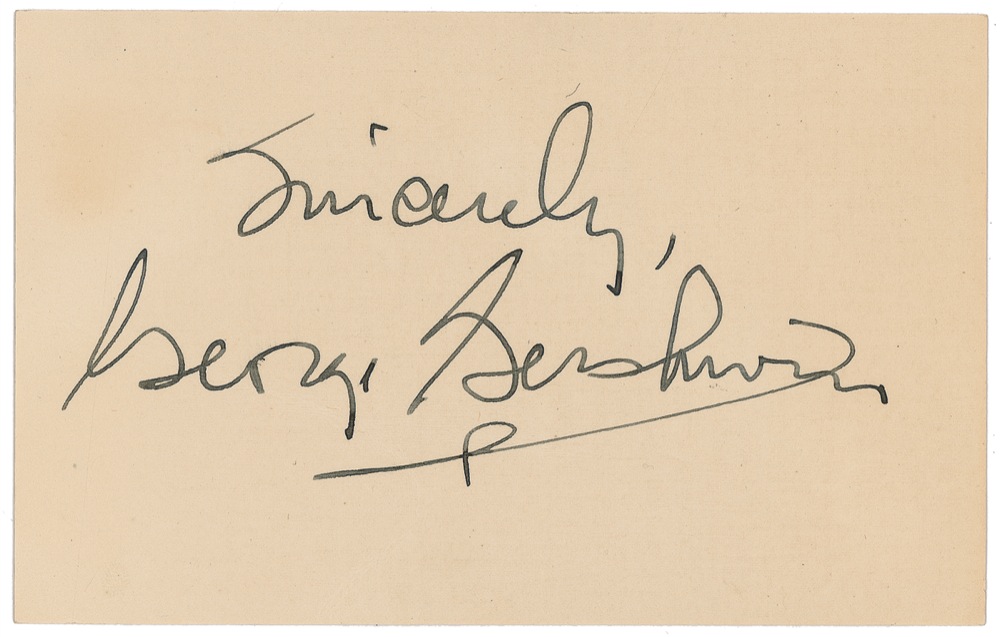 Sincerely,
George Gershwin